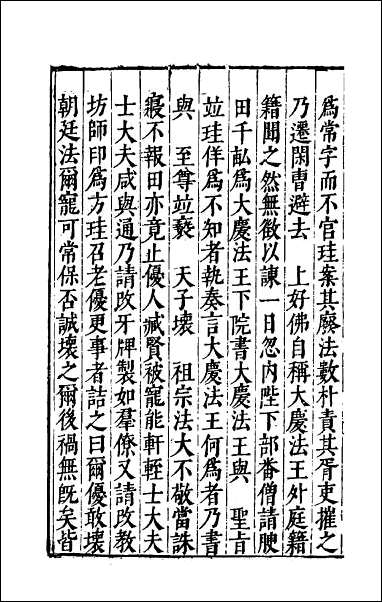 為常字而不官珪案其廢法數朴責其胥吏摧之
乃遷閑曹避去　上好佛自稱大慶法王外庭籍
籍聞之然無徵以諫一日忽內陛下部番僧請腴
田千畝為大慶法王下院書大慶法王與　聖旨
竝珪佯為不知者執奏言大慶法王何為者乃書
與　至尊竝褻　天子壞　祖宗法大不敬當誅
寢不報田亦竟止優人臧賢被寵能軒輊士大夫
士大夫咸與通乃請改牙牌製如羣僚又請改教
坊師印為方珪召老優更事者詰之曰爾優敢壞
朝廷法爾寵可常保否誠壞之爾後禍無旣矣皆